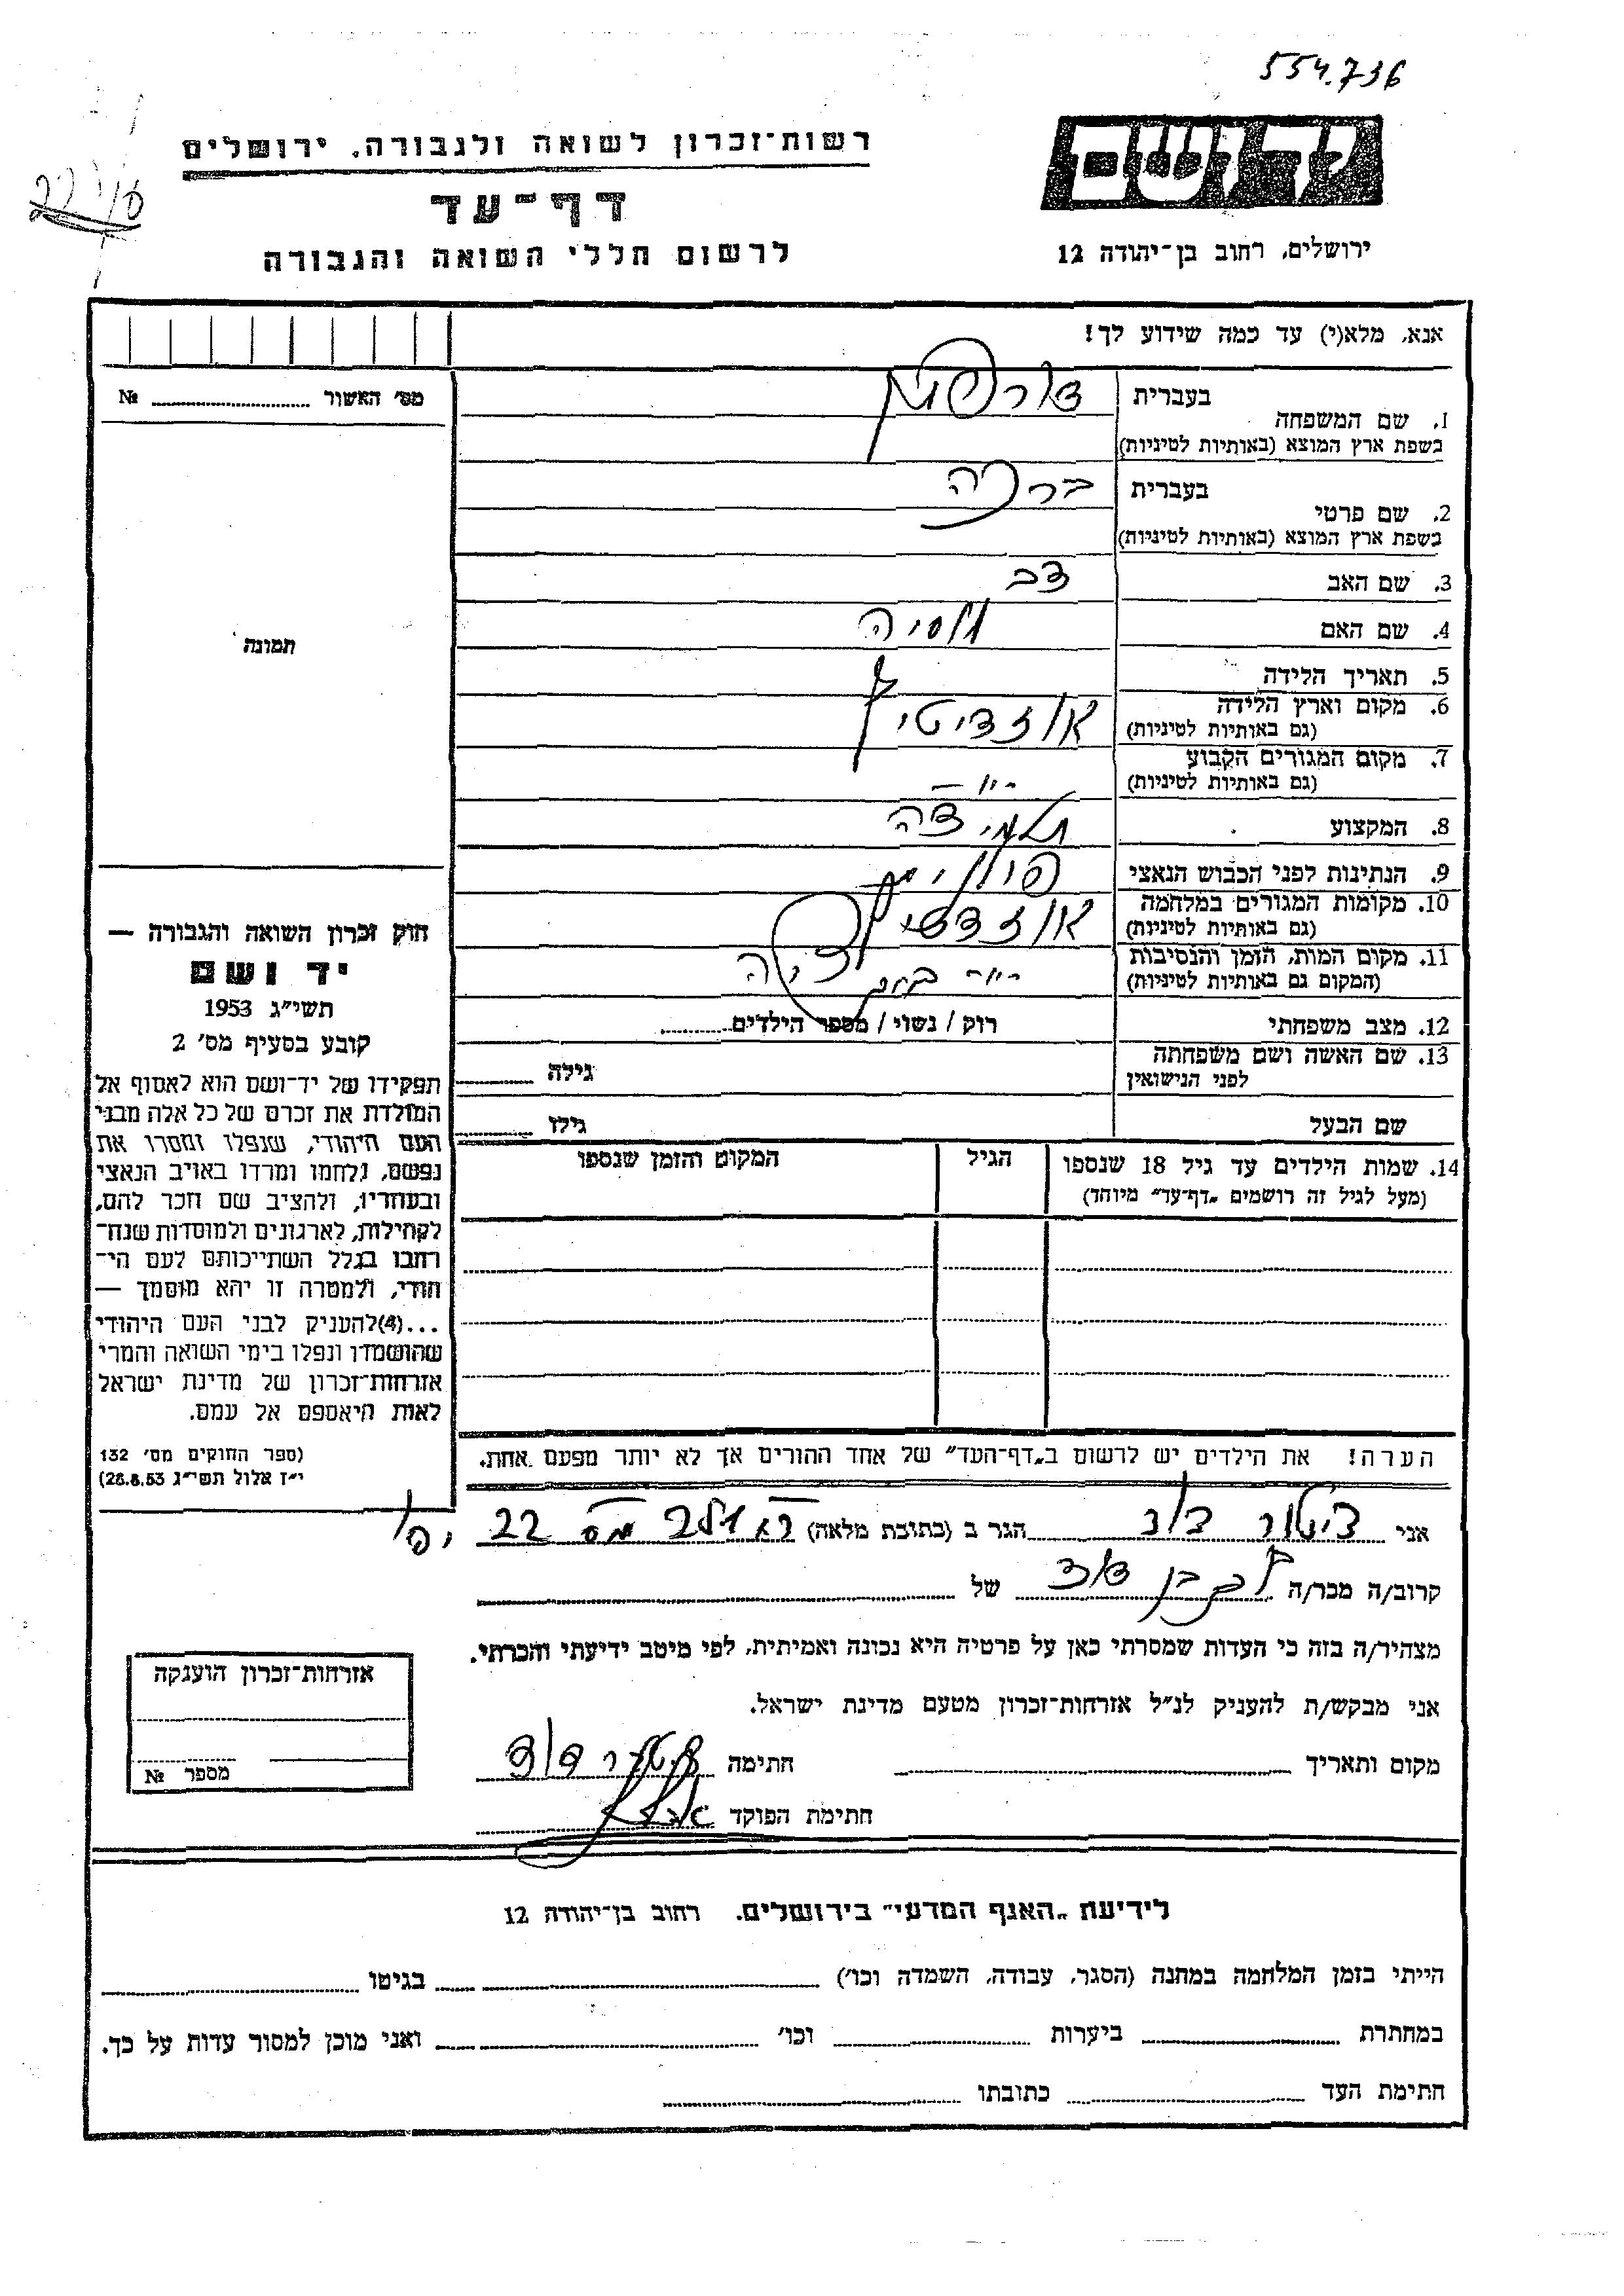 554.736
רשות־זכרון לשואה ולגבורה, ירושלים
דף־עד
לרשום חללי השואה והגבורה
יד ושם
ירושלים, רחוב בן־יהודה 12
אנא, מלא(י) עד כמה שידוע לך!
מס' האשור ........ №
תמונה
1. שם המשפחה
בעברית
בשפת ארץ המוצא (באותיות לטיניות)
2. שם פרטי
בעברית ברכה
בשפת ארץ המוצא (באותיות לטיניות)
3. שם האב דב
4. שם האם
5. תאריך הלידה
6. מקום וארץ הלידה
(גם באותיות לטיניות)
7. מקום המגורים הקבוע
(גם באותיות לטיניות)
8. המקצוע תלמידה
9. הנתינות לפני הכבוש הנאצי פולין
10. מקומות המגורים במלחמה
(גם באותיות לטיניות)
11. מקום המות, הזמן והנסיבות
(המקום גם באותיות לטיניות)
12. מצב משפחתי רוק / נשוי / מספר הילדים........
13. שם האשה ושם משפחתה
לפני הנישואין
גילה ........
שם הבעל גילו ........
14. שמות הילדים עד גיל 18 שנספו
(מעל לגיל זה רושמים „דף־עד" מיוחד)
הגיל
המקום והזמן שנספו
הערה! את הילדים יש לרשום ב„דף־העד" של אחד ההורים אך לא יותר מפעם אחת.
חוק זכרון השואה והגבורה —
יד ושם
תשי"ג 1953
קובע בסעיף מס' 2
תפקידו של יד־ושם הוא לאסוף אל
המולדת את זכרם של כל אלה מבני
העם היהודי, שנפלו ומסרו את
נפשם, נלחמו ומרדו באויב הנאצי
ובעוזריו, ולהציב שם וזכר להם,
לקהילות, לארגונים ולמוסדות שנח־
רבו בגלל השתייכותם לעם הי־
הודי, ולמטרה זו יהא מוסמך —
...(4)להעניק לבני העם היהודי
שהושמדו ונפלו בימי השואה והמרי
אזרחות־זכרון של מדינת ישראל
לאות היאספם אל עמם.
(ספר החוקים מס' 132
י"ז אלול תשי"ג 28.8.53)
אני הגר ב (כתובת מלאה) 22 יפו
קרוב/ה מכר/ה בן דוד של
מצהיר/ה בזה כי העדות שמסרתי כאן על פרטיה היא נכונה ואמיתית, לפי מיטב ידיעתי והכרתי.
אני מבקש/ת להעניק לנ"ל אזרחות־זכרון מטעם מדינת ישראל.
מקום ותאריך חתימה
חתימת הפוקד
אזרחות־זכרון הוענקה
מספר №
לידיעת „האגף המדעי" בירושלים. רחוב בן־יהודה 12
הייתי בזמן המלחמה במחנה (הסגר, עבודה, השמדה וכו') בגיטו
במחתרת ביערות וכו' ואני מוכן למסור עדות על כך.
חתימת העד כתובתו